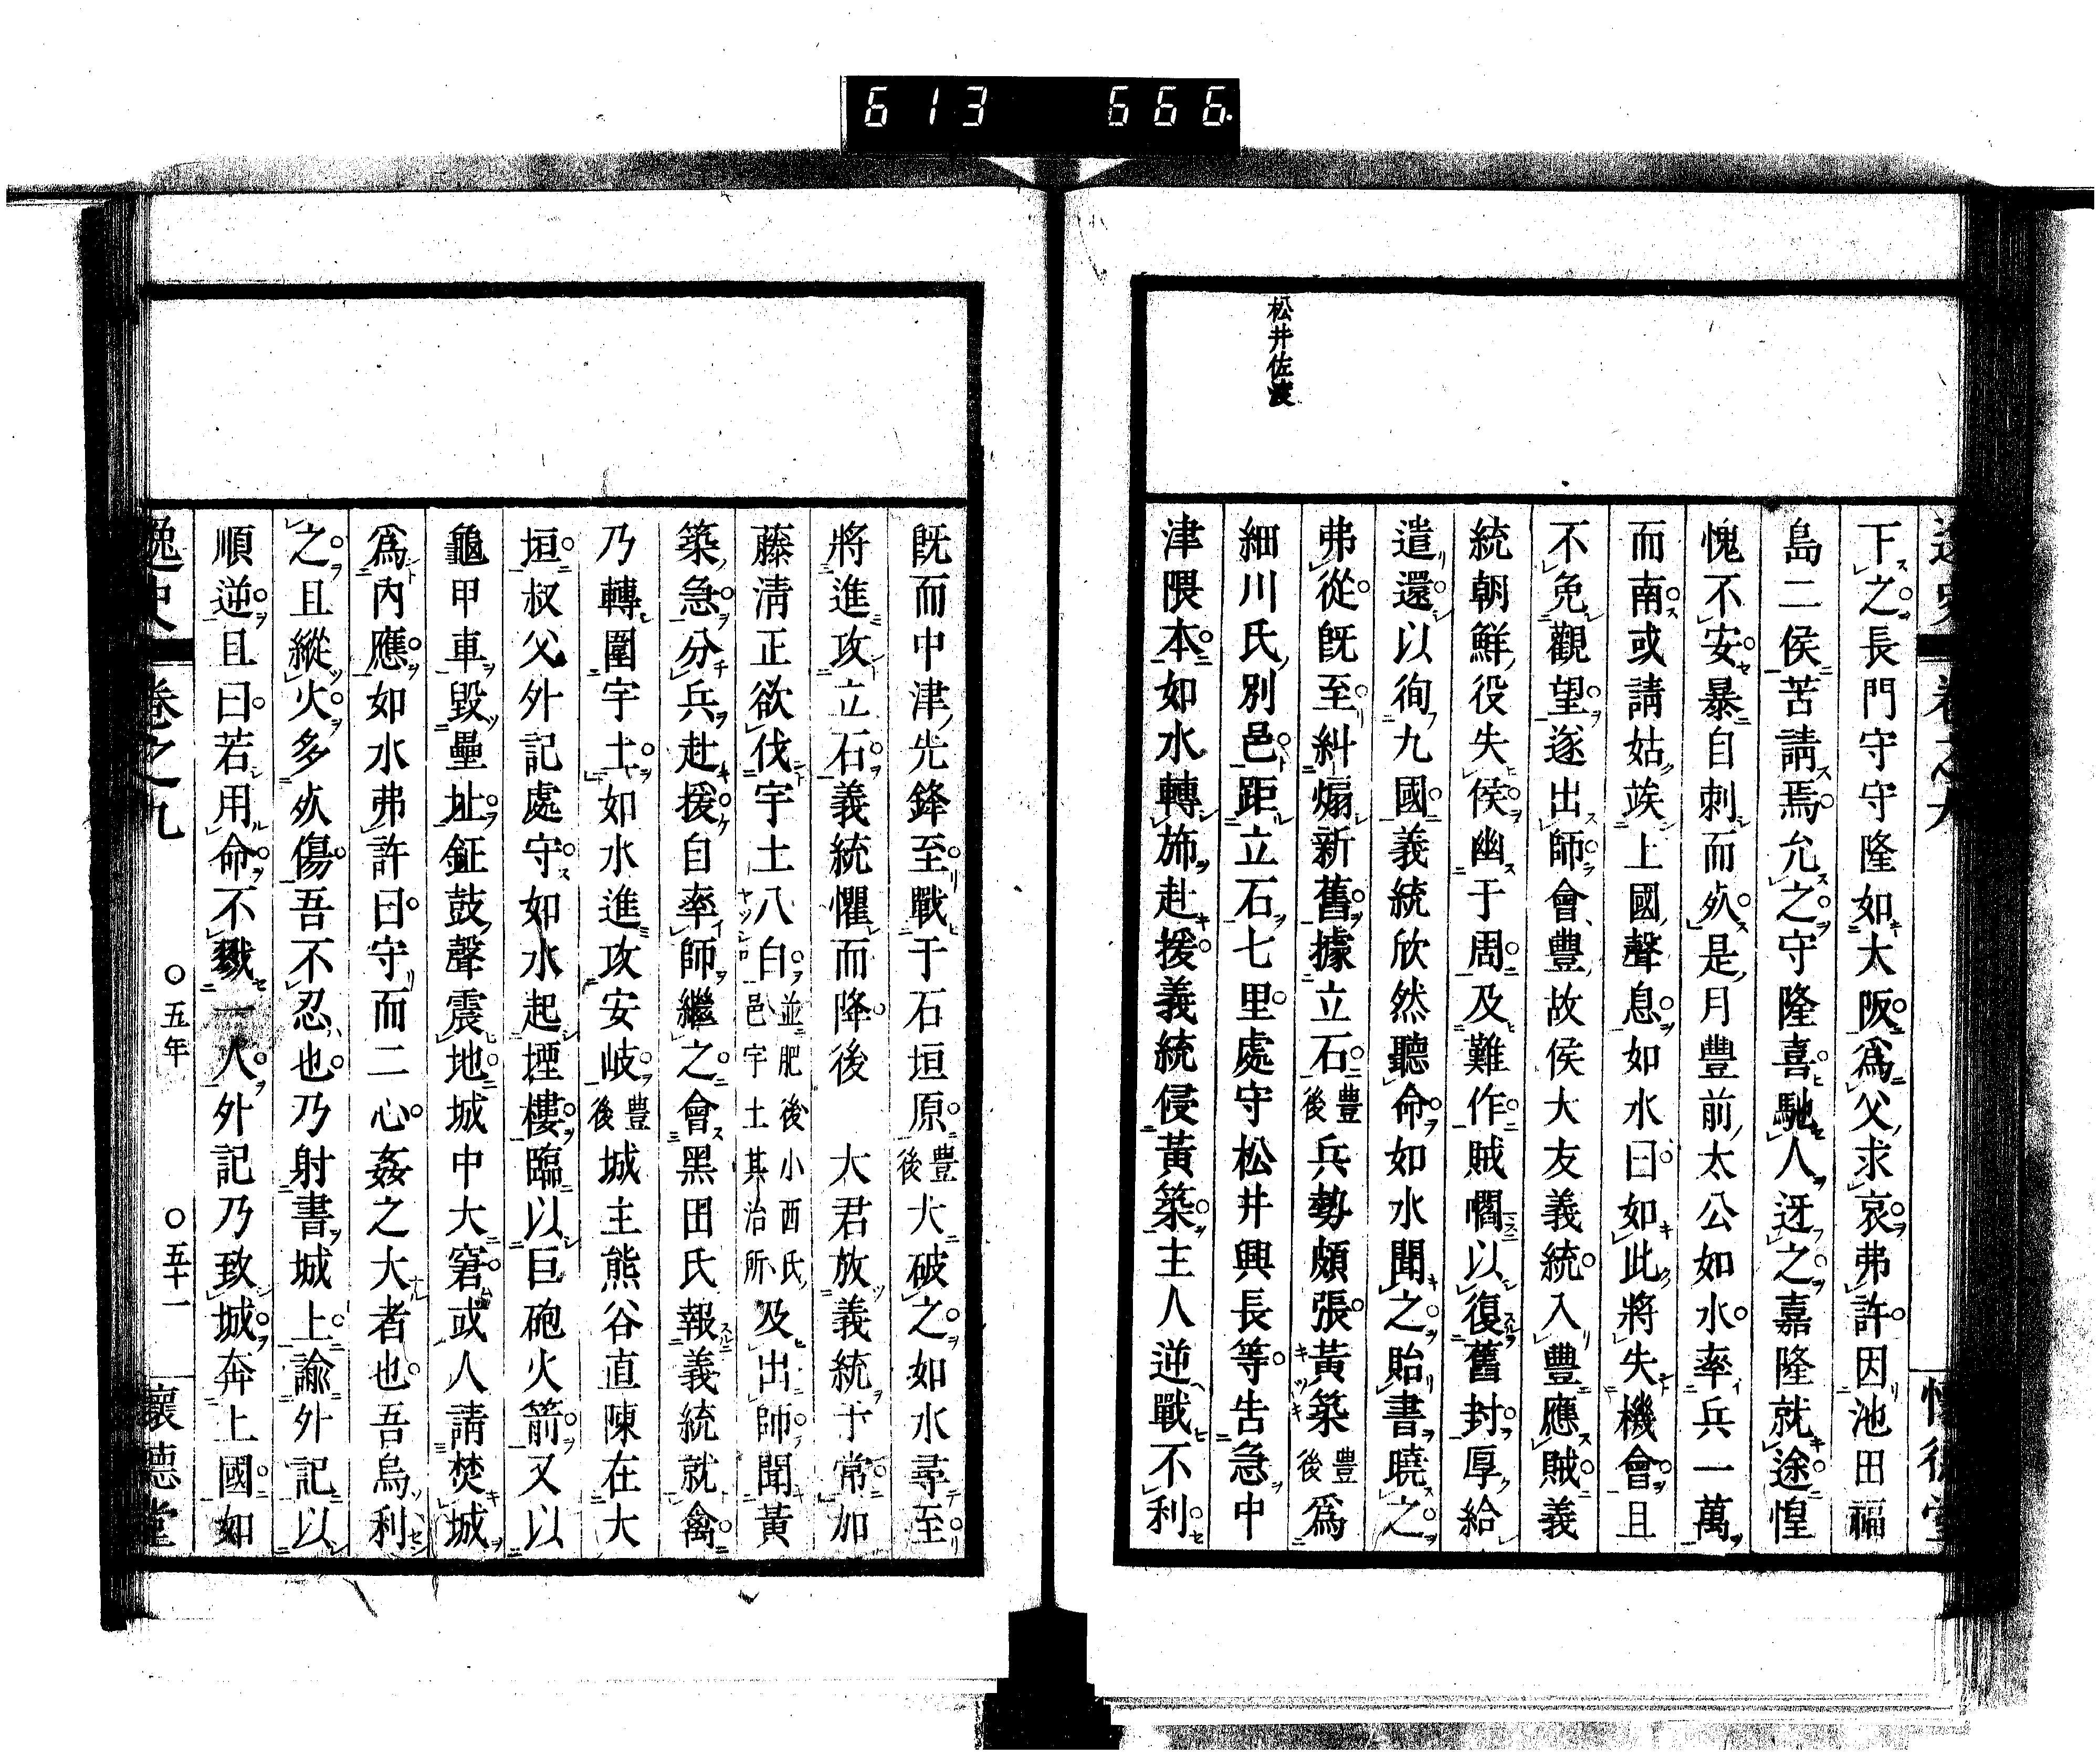 613 666
逸史 卷之九 懷德堂
松井佐渡
下之長門守守隆如大阪爲父求哀弗許因池田福
島二侯苦請焉允之守隆喜馳人迓之嘉隆就途惶
愧不安暴自刺而死是月豐前太公如水率兵一萬
而南或請姑竢上國聲息如水曰如此將失機會且
不免觀望遂出師會豐故侯大友義統入豐應賊義
統朝鮮役失侯幽于周及難作賊㗖以復舊封厚給
遣還以徇九國義統欣然聽命如水聞之貽書曉之
弗從既至糾煽新舊據立石豐後兵勢頗張黃築豐後爲
細川氏別邑距立石七里處守松井興長等告急中
津隈本如水轉斾赴援義統侵黃築主人逆戰不利
既而中津先鋒至戰于石垣原豐後大破之如水尋至
將進攻立石義統懼而降後 大君放義統于常加
藤淸正欲伐宇土八白並肥後小西氏邑宇土其治所及出師聞黃
築急分兵赴援自率師繼之會黑田氏報義統就禽
乃轉圍宇土如水進攻安岐豐後城主熊谷直陳在大
垣叔父外記處守如水起堙樓臨以巨砲火箭又以
龜甲車毀壘址鉦鼓聲震地城中大窘或人請焚城
爲內應如水弗許曰守而二心姦之大者也吾烏利
之且縱火多死傷吾不忍也乃射書城上諭外記以
順逆且曰若用命不戮一人外記乃致城奔上國如
逸史 卷之九 ○五年 ○五十一 懷德堂